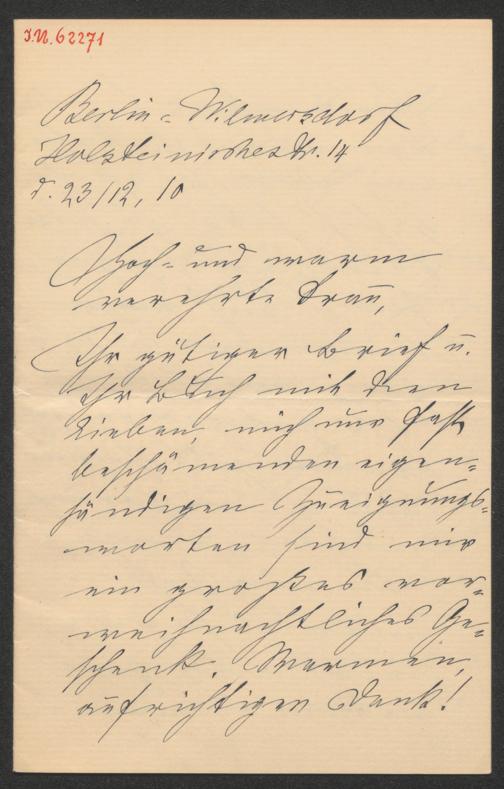 J.N. 62271
Berlin-Wilmersdorf
Holsteinischestr. 14
d. 23/12, 10
Hoch- und warm
verehrte Frau,
Ihr gütiger Brief u.
Ihr Buch mit den
lieben, mich nur fast
beschämenden eigen-
händigen Zueignungs-
worten sind mir
ein großes vor-
weihnachtliches Ge-
schenk. Warmen,
aufrichtigen Dank!